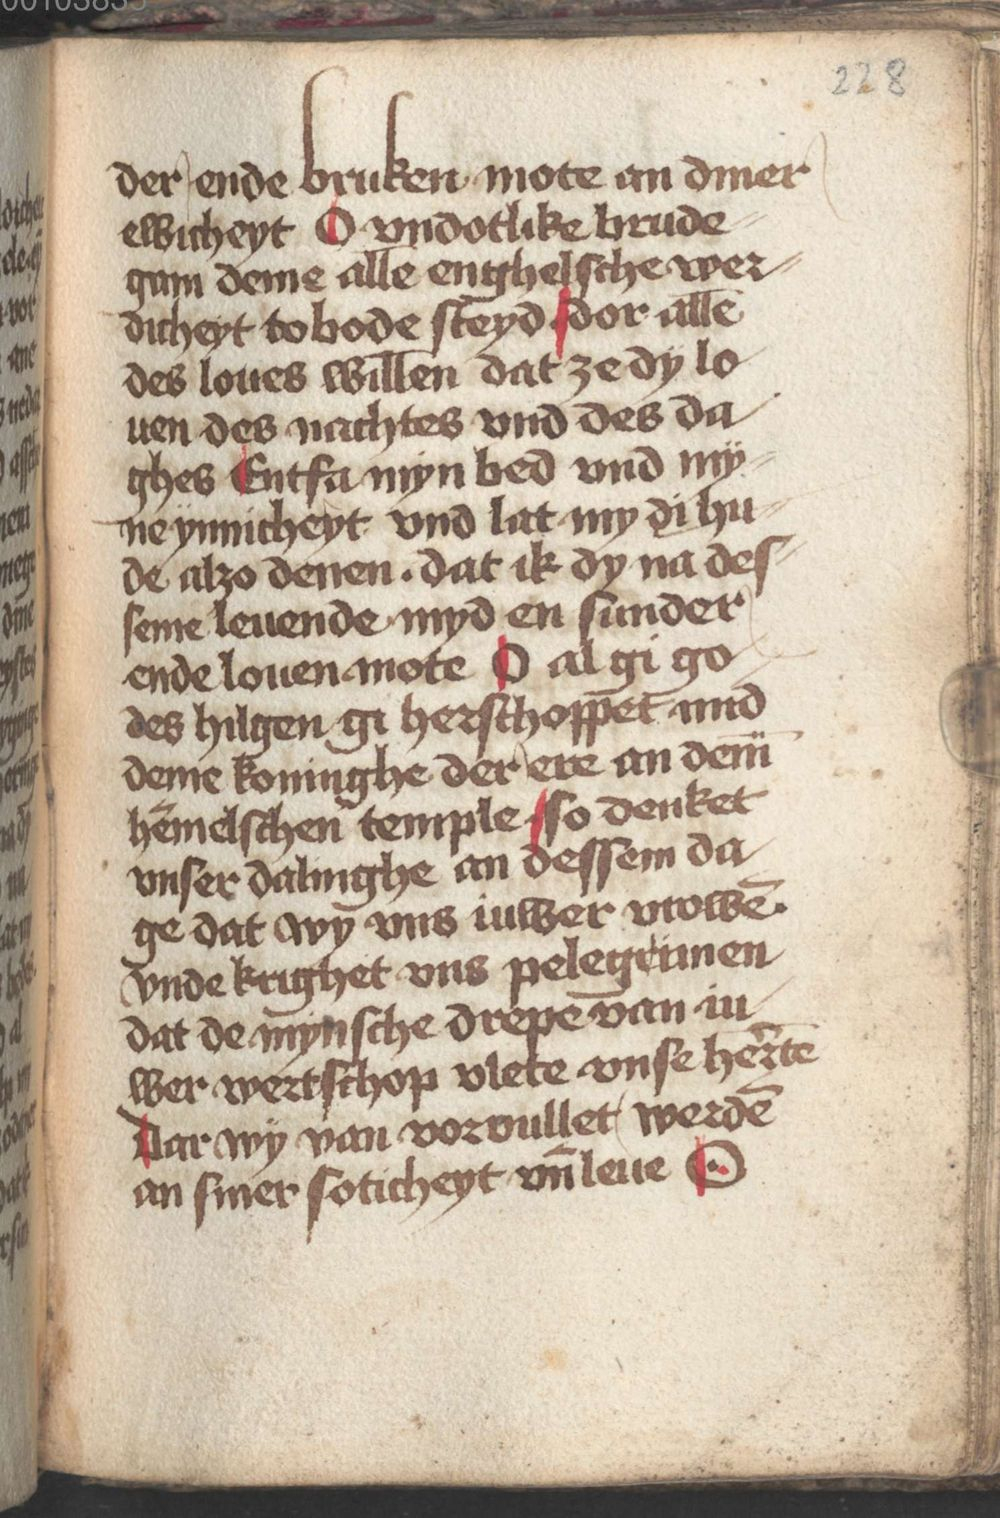 228
der ende bruken mote an diner
ewicheyt O vndotlike brude-
gam deme alle enghelsche wer-
dicheyt to bode steyd dor alle
des loues willen dat ze dy lo
uen des nachtes vnd des da
ghes Entfa myn bed vnd my-
ne ynnicheyt vnd lat my di hu-
de alzo denen. dat ik dy na des-
seme leuende myd en sunder
ende louen mote O al gi go
des hilgen gi herschoppet mid
deme koninghe der ere an dem
hemelschen temple so denket
vnser dalinghe an dessem da
ge dat wy vns iuwer vrowē.
vnde krighet vns pelegrimen
dat de mynsche drepe van iu
wer wertschop vlete vnse herte
Dar wy van voruullet werdē
an siner soticheyt vn̄ leue O